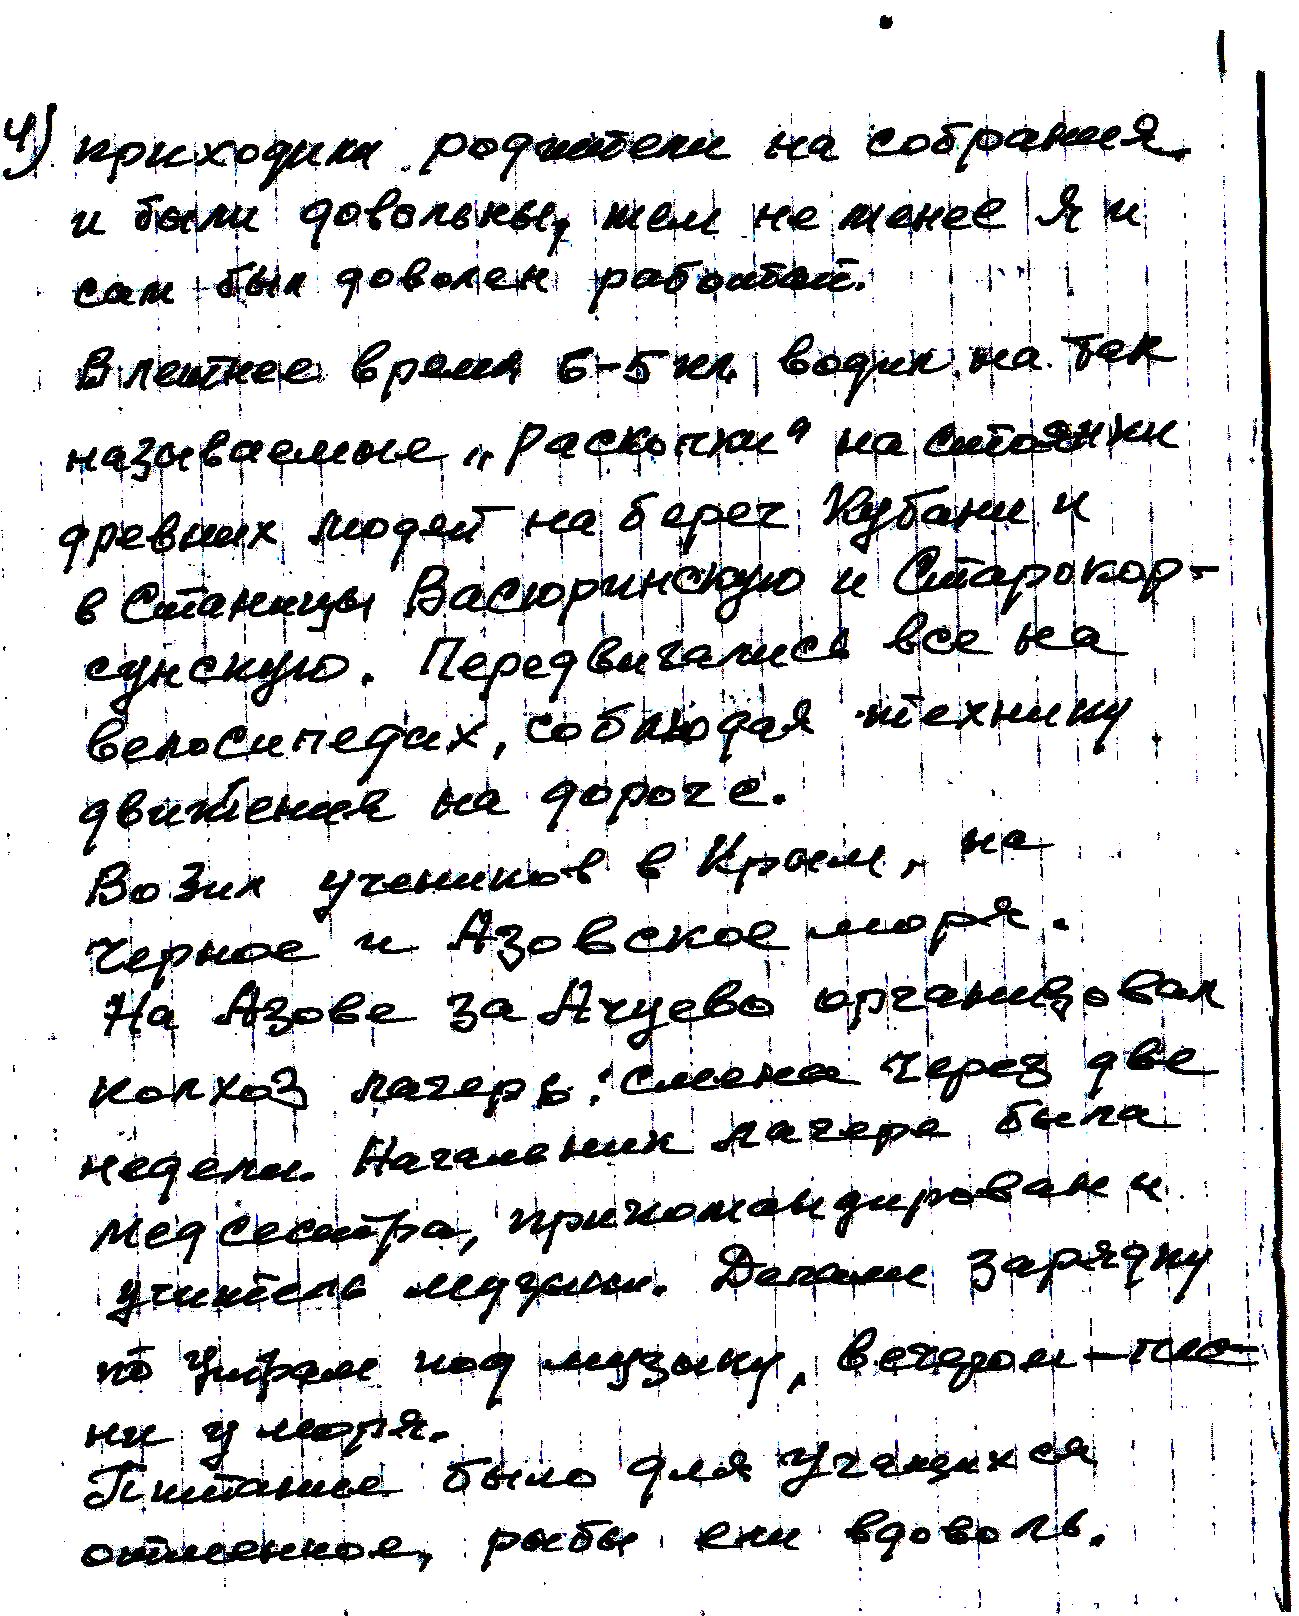 4) приходили родители на собрания
и были довольны, тем не менее я и
сам был доволен работай.
В летнее время 6-5 кл. водил на так
называемые „Раскопки" на стоянки
древних людей на берег Кубани и
в Станицы Васюринскую и Старокор-
сунскую. Передвигались все на
велосипедах, соблюдая технику
движения на дороге.
Возил учеников в Крым, на
Черное и Азовское моря.
На Азове за Ачуево организовал
колхоз лагерь: смена через две
недели. Начальник лагеря была
медсестра, прикомандирован и
учитель музыки. Делали зарядку
по утрам под музыку, вечером - пес-
ни у моря.
Питание было для учащихся
отменное, рыбы ели вдоволь.